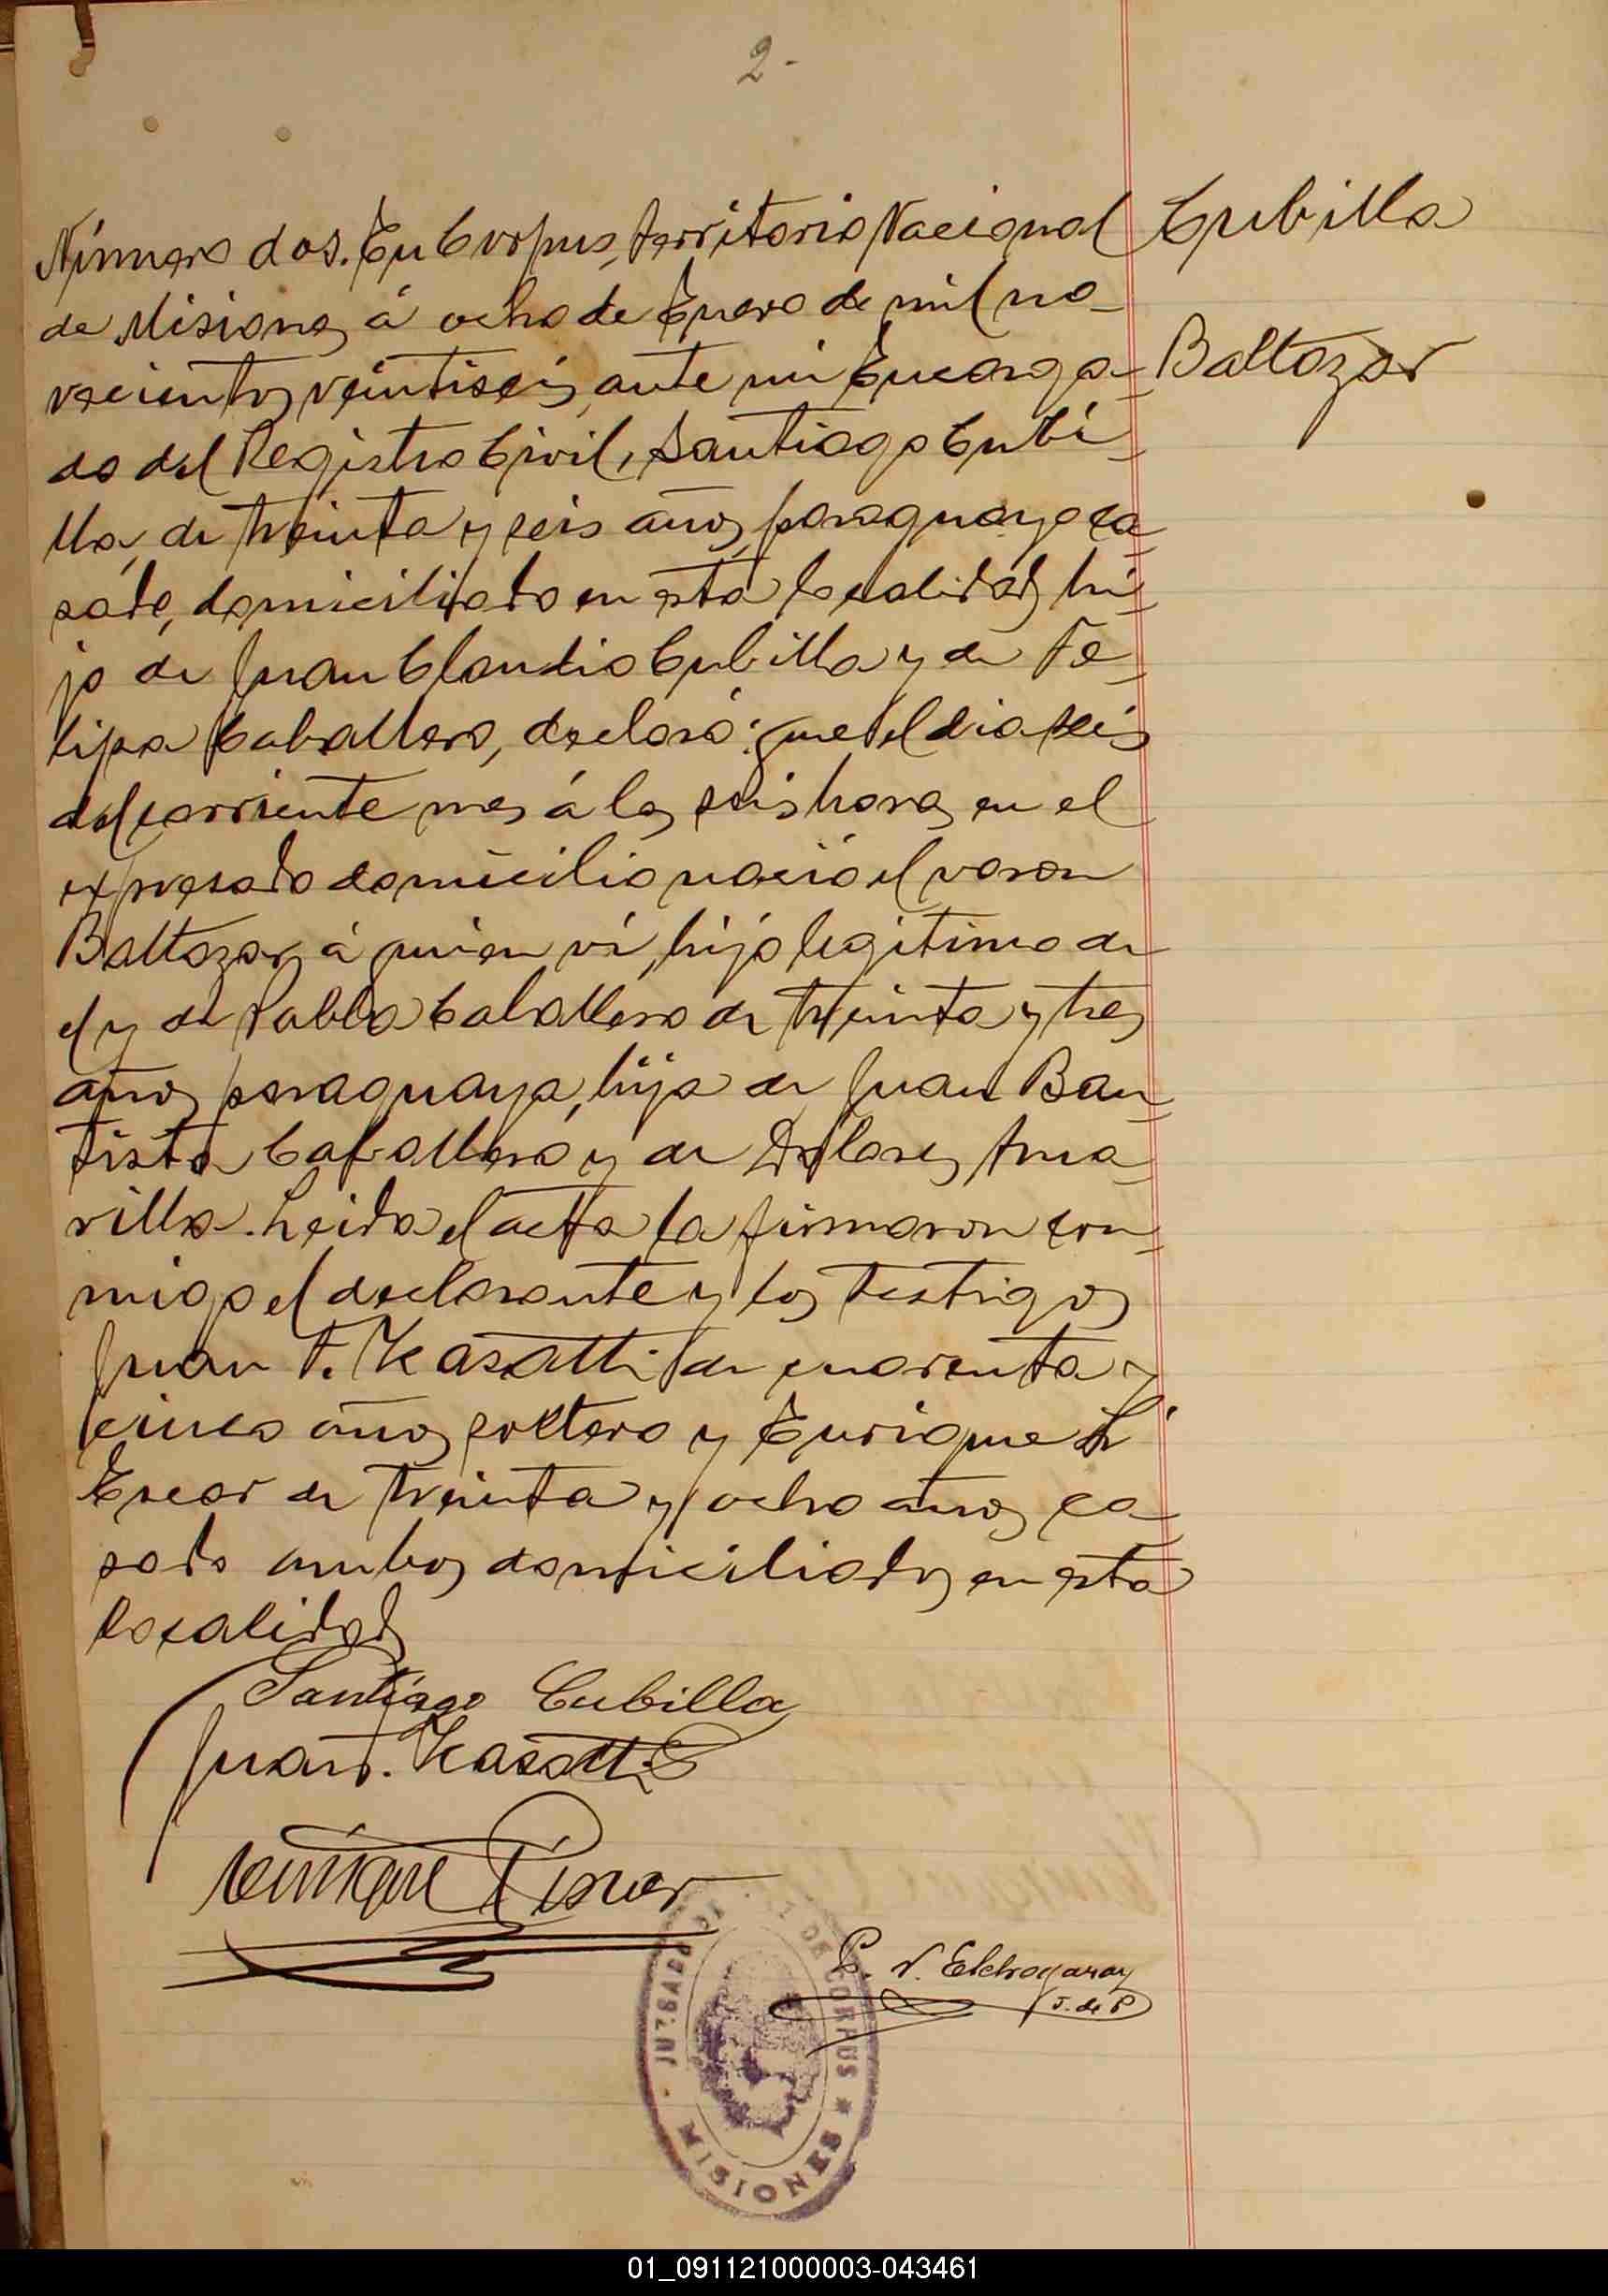 2-
Número dos. En Corpus, territorio Nacional
de Misiones, á ocho de Enero de mil no-
vecientos veintiseis, ante mi Encarga-
do del Registro Civil, Santiago Cubi-
lla, de treinta y seis años, paraguayo ca-
sado, domiciliado en esta localidad, hi-
jo de Juan Claudio Cubilla y de Fe-
lipa Caballero, declaró: que el dia seis
del corriente mes á las seis horas en el
expresado domicilio nació el varon
Baltazar, á quien ví, hijo legitimo de
el y de Pabla Caballero de treinta y tres
años, paraguaya, hija de Juan Bau-
tista Caballero y de Dolores Ama-
rilla. Leida el acta la firmaron con-
migo el declarante y los testigos
Juan T. Kasatti de cuarenta y
cinco años, soltero y Enrique
de treinta y ocho años, ca-
sado ambos domiciliados en esta
localidad
Cubilla
Baltazar
Santiago Cubilla
Juan T. Kasatti
Enrique
P. N. Etchogaray
J. de P
JUZGADO DE CORPUS
MISIONES
01_091121000003-043461